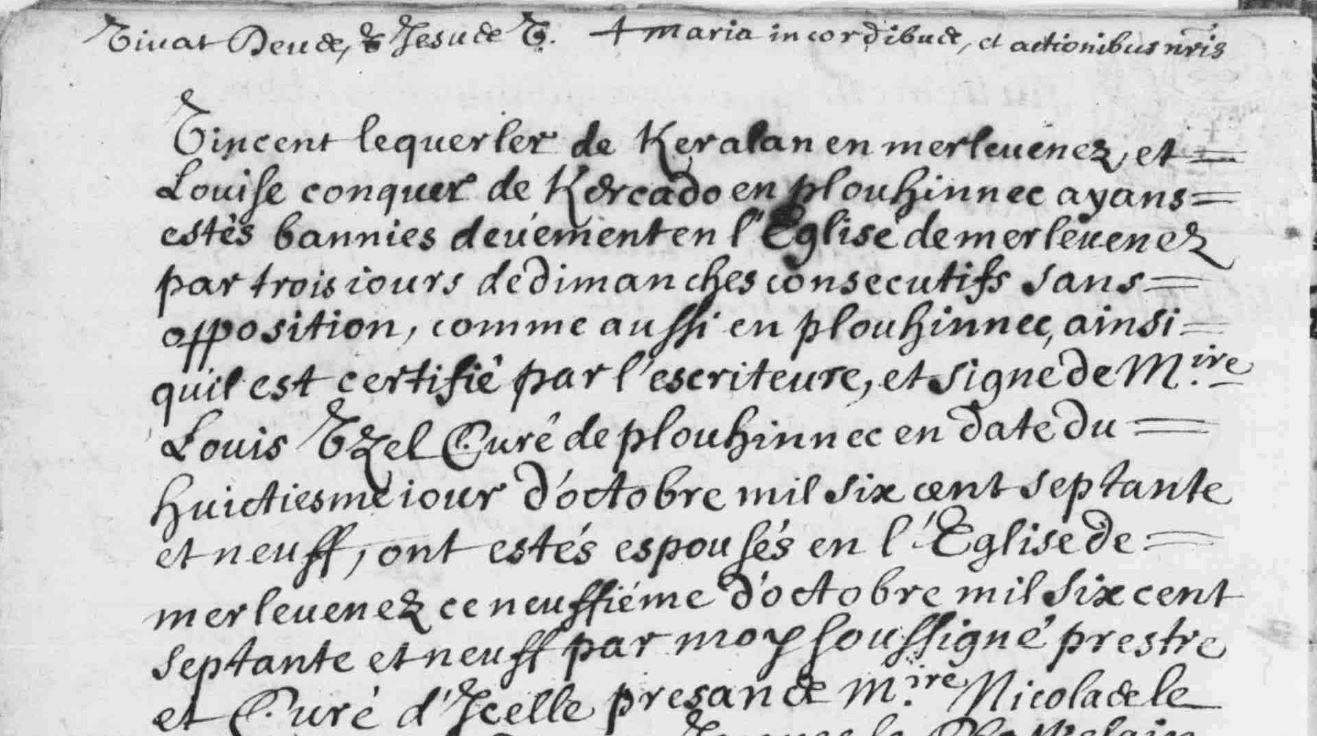 Vivat Deus, & Jesus &. + Maria in cordibus, et actionibus nris
Vincent lequerler de Keralan en merlevenez, et =
Louise conquer de Kercado en plouhinnec ayans =
estés bannies deuément en l'Eglise de merleuenez
par trois iours de dimanches consecutifs sans =
opposition, comme aussi en plouhinnec, ainsi =
quil est certifié par l'escriteure, et signe de M.ire
Louis Vzel Curé de plouhinnec en date du =
huictiesme iour d'octobre mil six cent septante
et neuff, ont estés espousés en l'Eglise de =
merleuenez ce neuffiéme d'octobre mil six cent
septante et neuff par moy soussigné prestre
et Curé d'Icelle presans M.ire Nicolas le